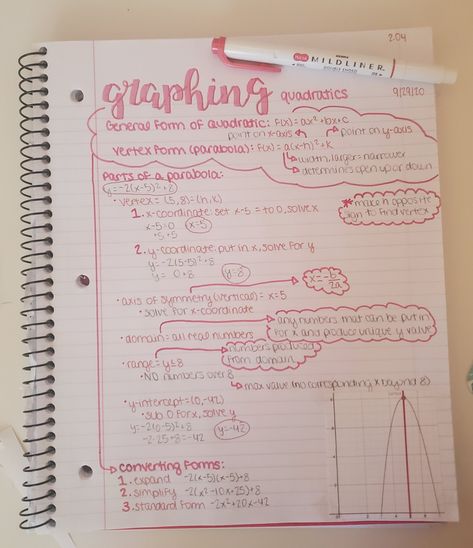 2.04
MILDLINER
graphing quadratics
9/29/20
General form of Quadratic: F(x) = ax²+bx+c
point on x-axis point on y-axis
Vertex Form (parabola): F(x) = a(x-h)²+k
width, larger = narrower
determines open up or down
Parts of a parabola:
y=-2(x-5)²+8
• vertex = (5,8)=(h,k)
1. x-coordinate: set x-5 = to 0, solve x
x-5=0 x=5
+5 +5
* make h opposite
sign to find vertex
2. y-coordinate: put in x, solve for y
y=-2(5-5)²+8
y= 0+8 y=8
x = -b/2a
• axis of symmetry (vertical) = x=5
• solve for x-coordinate
• domain = all real numbers
any numbers that can be put in
for x and produce unique y value
• range = y≤8
numbers produced
from domain
• NO numbers over 8
max value (no corresponding x beyond 8)
• y-intercept = (0,-42)
• sub 0 for x, solve y
y=-2(0-5)²+8
-2·25+8=-42 y=-42
converting forms:
1. expand -2(x-5)(x-5)+8
2. simplify -2(x²-10x+25)+8
3. standard form -2x²+20x-42